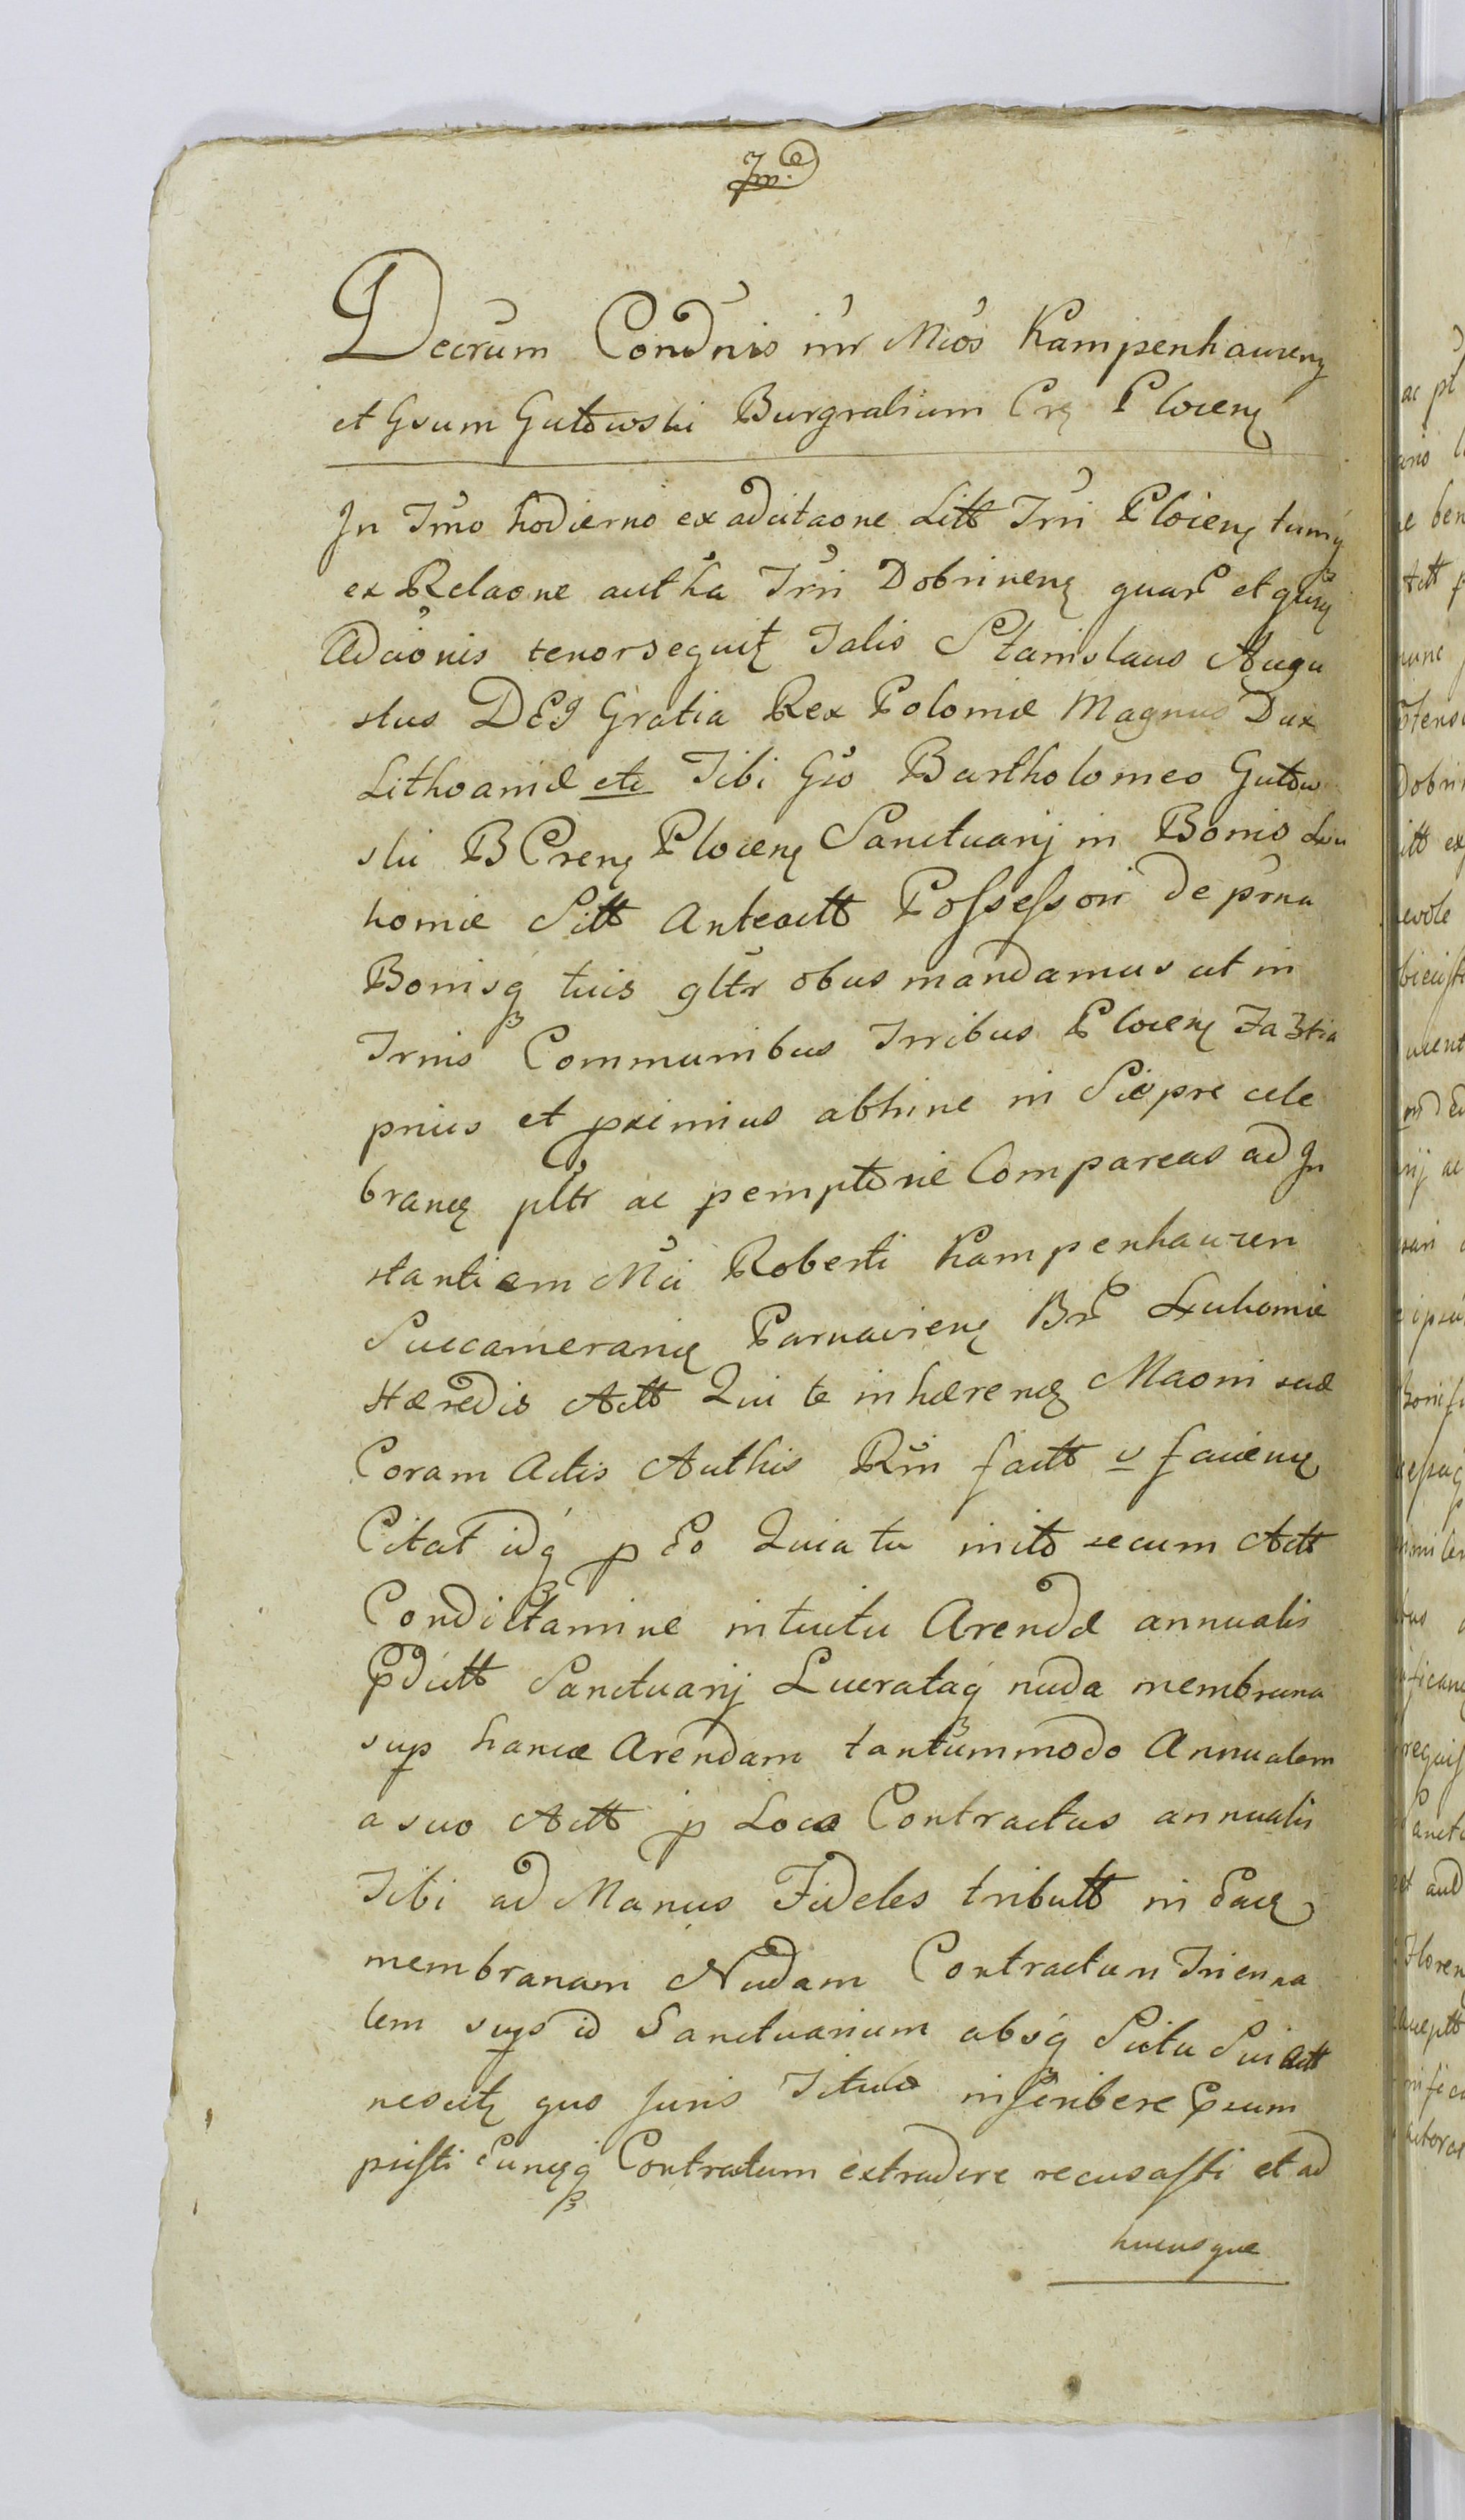 Decrum Condnis inr Mcos Kampenhauzenq
et Gsum Gutowski Burgrabium Crq Plocenq
In Trno hodierno ex adcitaone Litt Trri Plocenq tumq
ex Relaone autha Trri Dobrinenq quar et qusq
Adcionis tenor sequitq Talis Stanislaus Augu
stus DEI Gratia Rex Poloniæ Magnus Dux
Lithvaniæ etc Tibi Gso Bartholomeo Gutow
ski B Crenq Plocenq Sanctuarij in Bonis Łu
homiæ Sitt Anteactt Possessori de prna
Bonisq tuis gltr obus mandamus ut in
Trnis Communibus Trribus Plocenq
prius et pximius abhinc in Sierpre cele
brandq pltr ac pemptorie Compareas ad In
stantiam Mci Roberti Kampenhauzen
Succamerariq Parnavienq Br Łuhomiæ
Hæredis Actt Qui te inhærendq Maoni suæ
Coram Actis Authis Rm factt v faciendq
Citat idq p Eo Quia tu inito secum Actt
Condictamine intuitu Arendæ annualis
Pdictt Sanctuarij Lucrataq nuda membrana
sup hance Arendam tantummodo Annualem
a suo Actt p Loco Contractus annualis
Tibi ad Manus Fideles tributt in Eacq
membranam Nudam Contractum Trienna
lem sups id Sanctuarium absq Scitu Sui Actt
nescitq quo Juris Titulo inscribere Psum
psisti Euncqq Contractum extradere recusasti et ad
hucusque